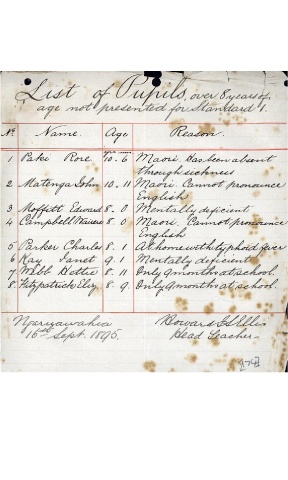 List of Pupils, over 8 years of
age not presented for Standard 1.
No. Name. Age Reason.
1 Pakei Rore 10. 6 Maori Has been absent
through sickness
2 Matenga John 10. 11 Maori. Cannot pronounce
English
3 Moffitt Edward 8. 0 Mentally deficient
4 Campbell 8. 0 M. Cannot pronounce
English
5 Parker Charles 8. 1 At home with typhoid fever
6 Kay Janet 9. 1 Mentally deficient
7 Webb Hettie 8. 11 Only 9 months at school.
8 Fitzpatrick Eliz 8. 9. Only 9 months at school.
Ngaruawahia
16th Sept. 1895.
Howard Ellis
Head Teacher